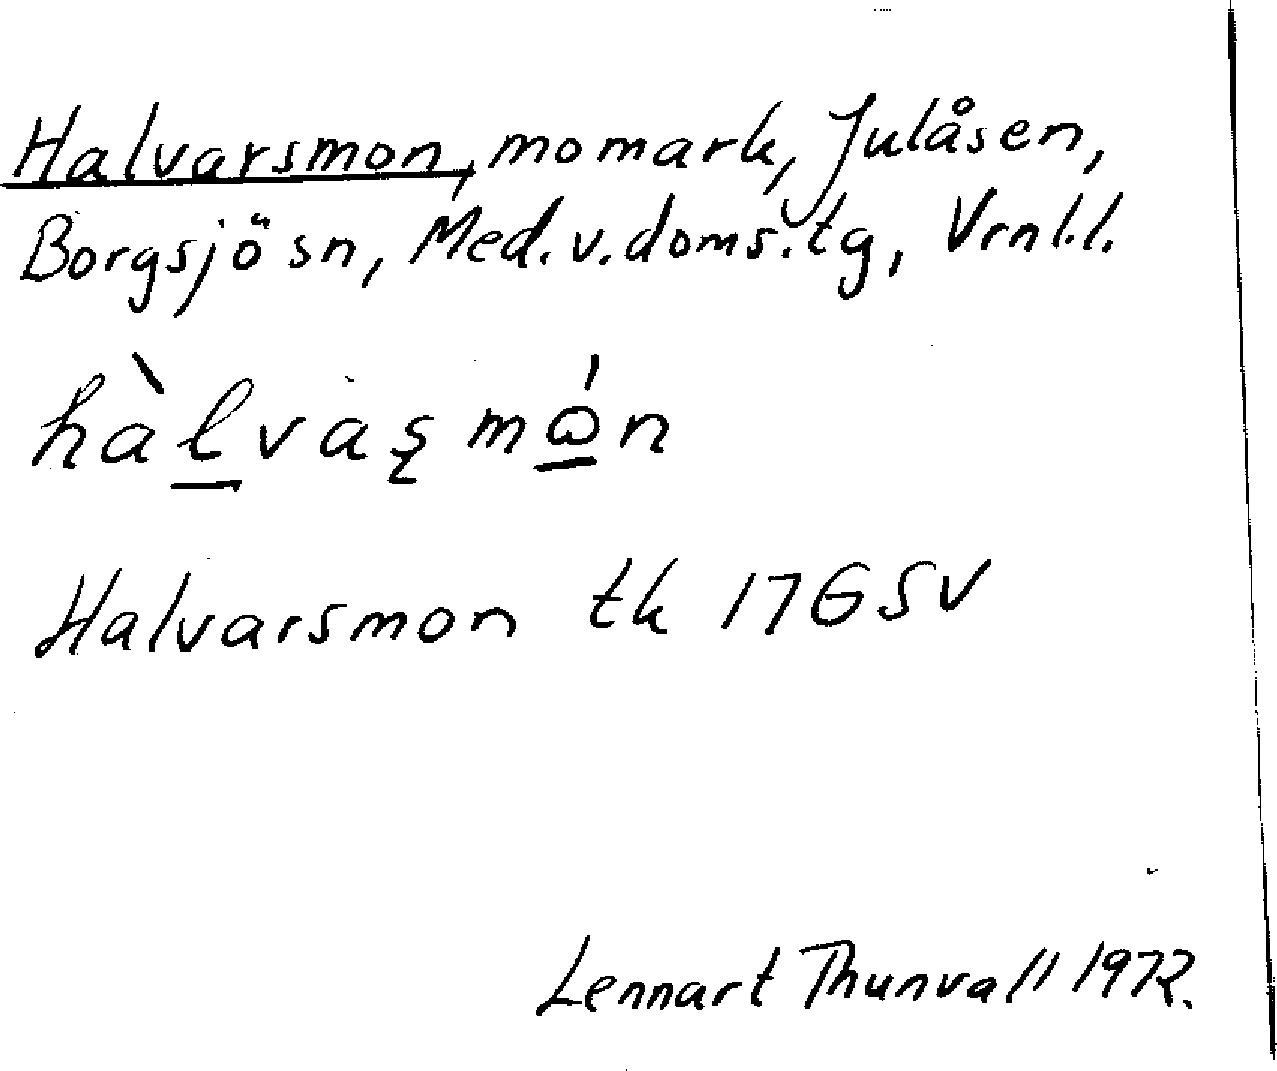 Halvarsmon, momark, Julåsen,
Borgsjö sn, Med. v. doms.tg, Vrnl.l.
hàlvaʂmǫ́n
Halvarsmon tk 17GSV
Lennart Thunvall 1972.